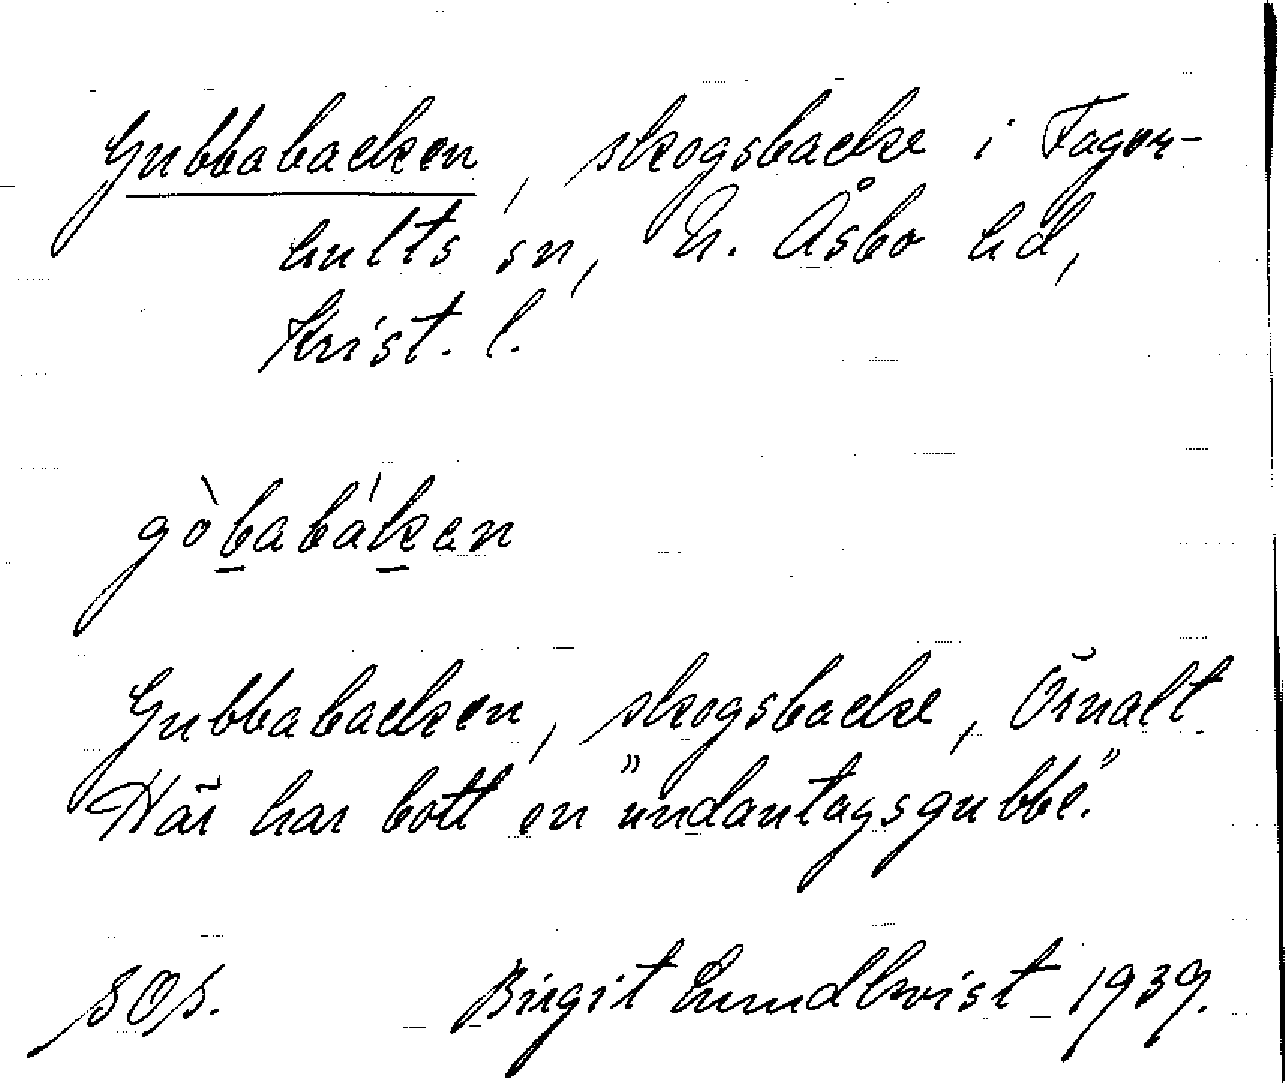 Gubbabacken, skogsbacke i Fager-
hults sn, N. Åsbo hd,
Krist. l.
gòbabákan
Gubbabacken, skogsbacke, Örnalt.
Här har bott en "undantagsgubbe".
SOS. Birgit Lundkvist 1939.